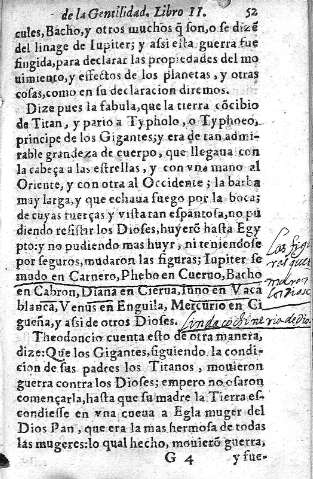 de la Gentilidad. Libro II. 52
cules, Bacho, y otros muchos q̃ son, o se dizẽ
del linage de Iupiter; y assi esta guerra fue
fingida, para declarar las propiedades del mo
uimiento, y effectos de los planetas, y otras
cosas, como en su declaracion diremos.
Dize pues la fabula, que la tierra cõcibio
de Titan, y pario a Typholo, o Typhoeo,
principe de los Gigantes; y era de tan admi-
rable grandeza de cuerpo, que llegaua con
la cabeça a las estrellas, y con vna mano al
Oriente, y con otra al Occidente; la barba
muy larga, y que echaua fuego por la boca;
de cuyas fuerças y vista tan espantosa, no pu
diendo resistir los Dioses, huyerõ hasta Egy
pto: y no pudiendo mas huyr, ni teniendose
por seguros, mudaron las figuras; Iupiter se
mudo en Carnero, Phebo en Cueruo, Bacho
en Cabron, Diana en Cierua, Iuno en Vaca
blanca, Venus en Enguila, Mercurio en Ci
gueña, y assi de otros Dioses.
Theodoncio cuenta esto de otra manera,
dize: Que los Gigantes, siguiendo la condi-
cion de sus padres los Titanos, mouieron
guerra contra los Dioses; empero no osaron
començarla, hasta que su madre la Tierra es-
condiesse en vna cueua a Egla muger del
Dios Pan, que era la mas hermosa de todas
las mugeres: lo qual hecho, mouierõ guerra,
G 4 y fue-
Las figu
Linda